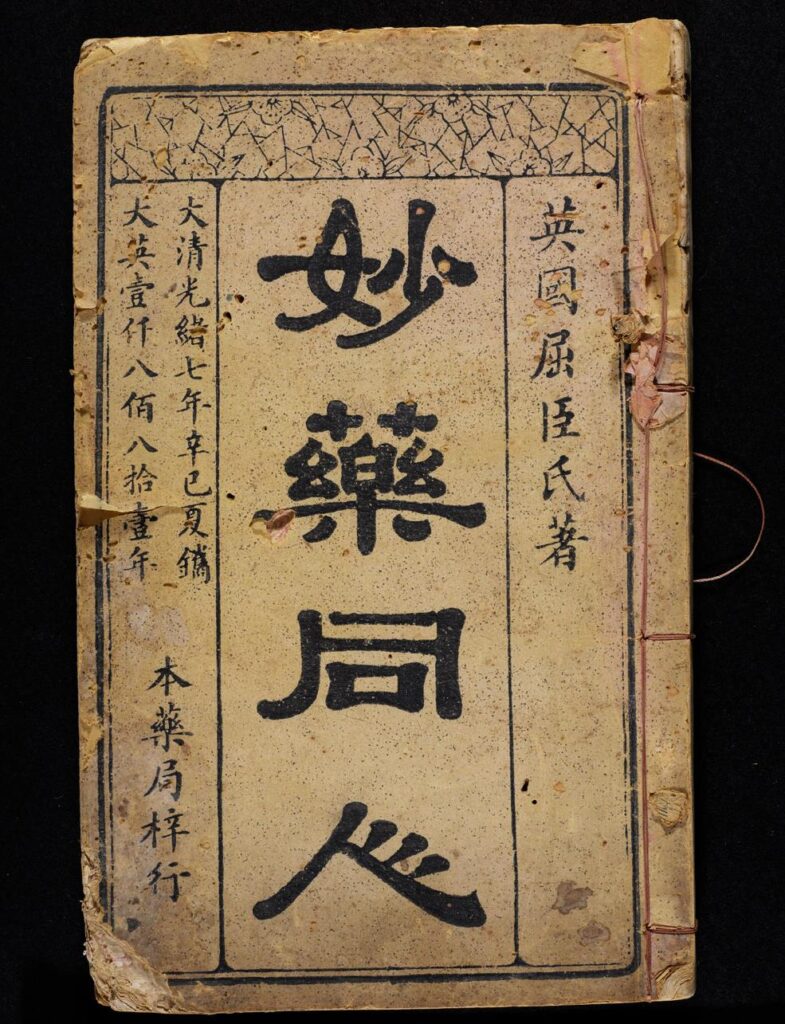 英國屈臣氏著
妙藥同人
大清光緒七年辛巳夏鐫
大英壹仟八佰八拾壹年
本藥局梓行